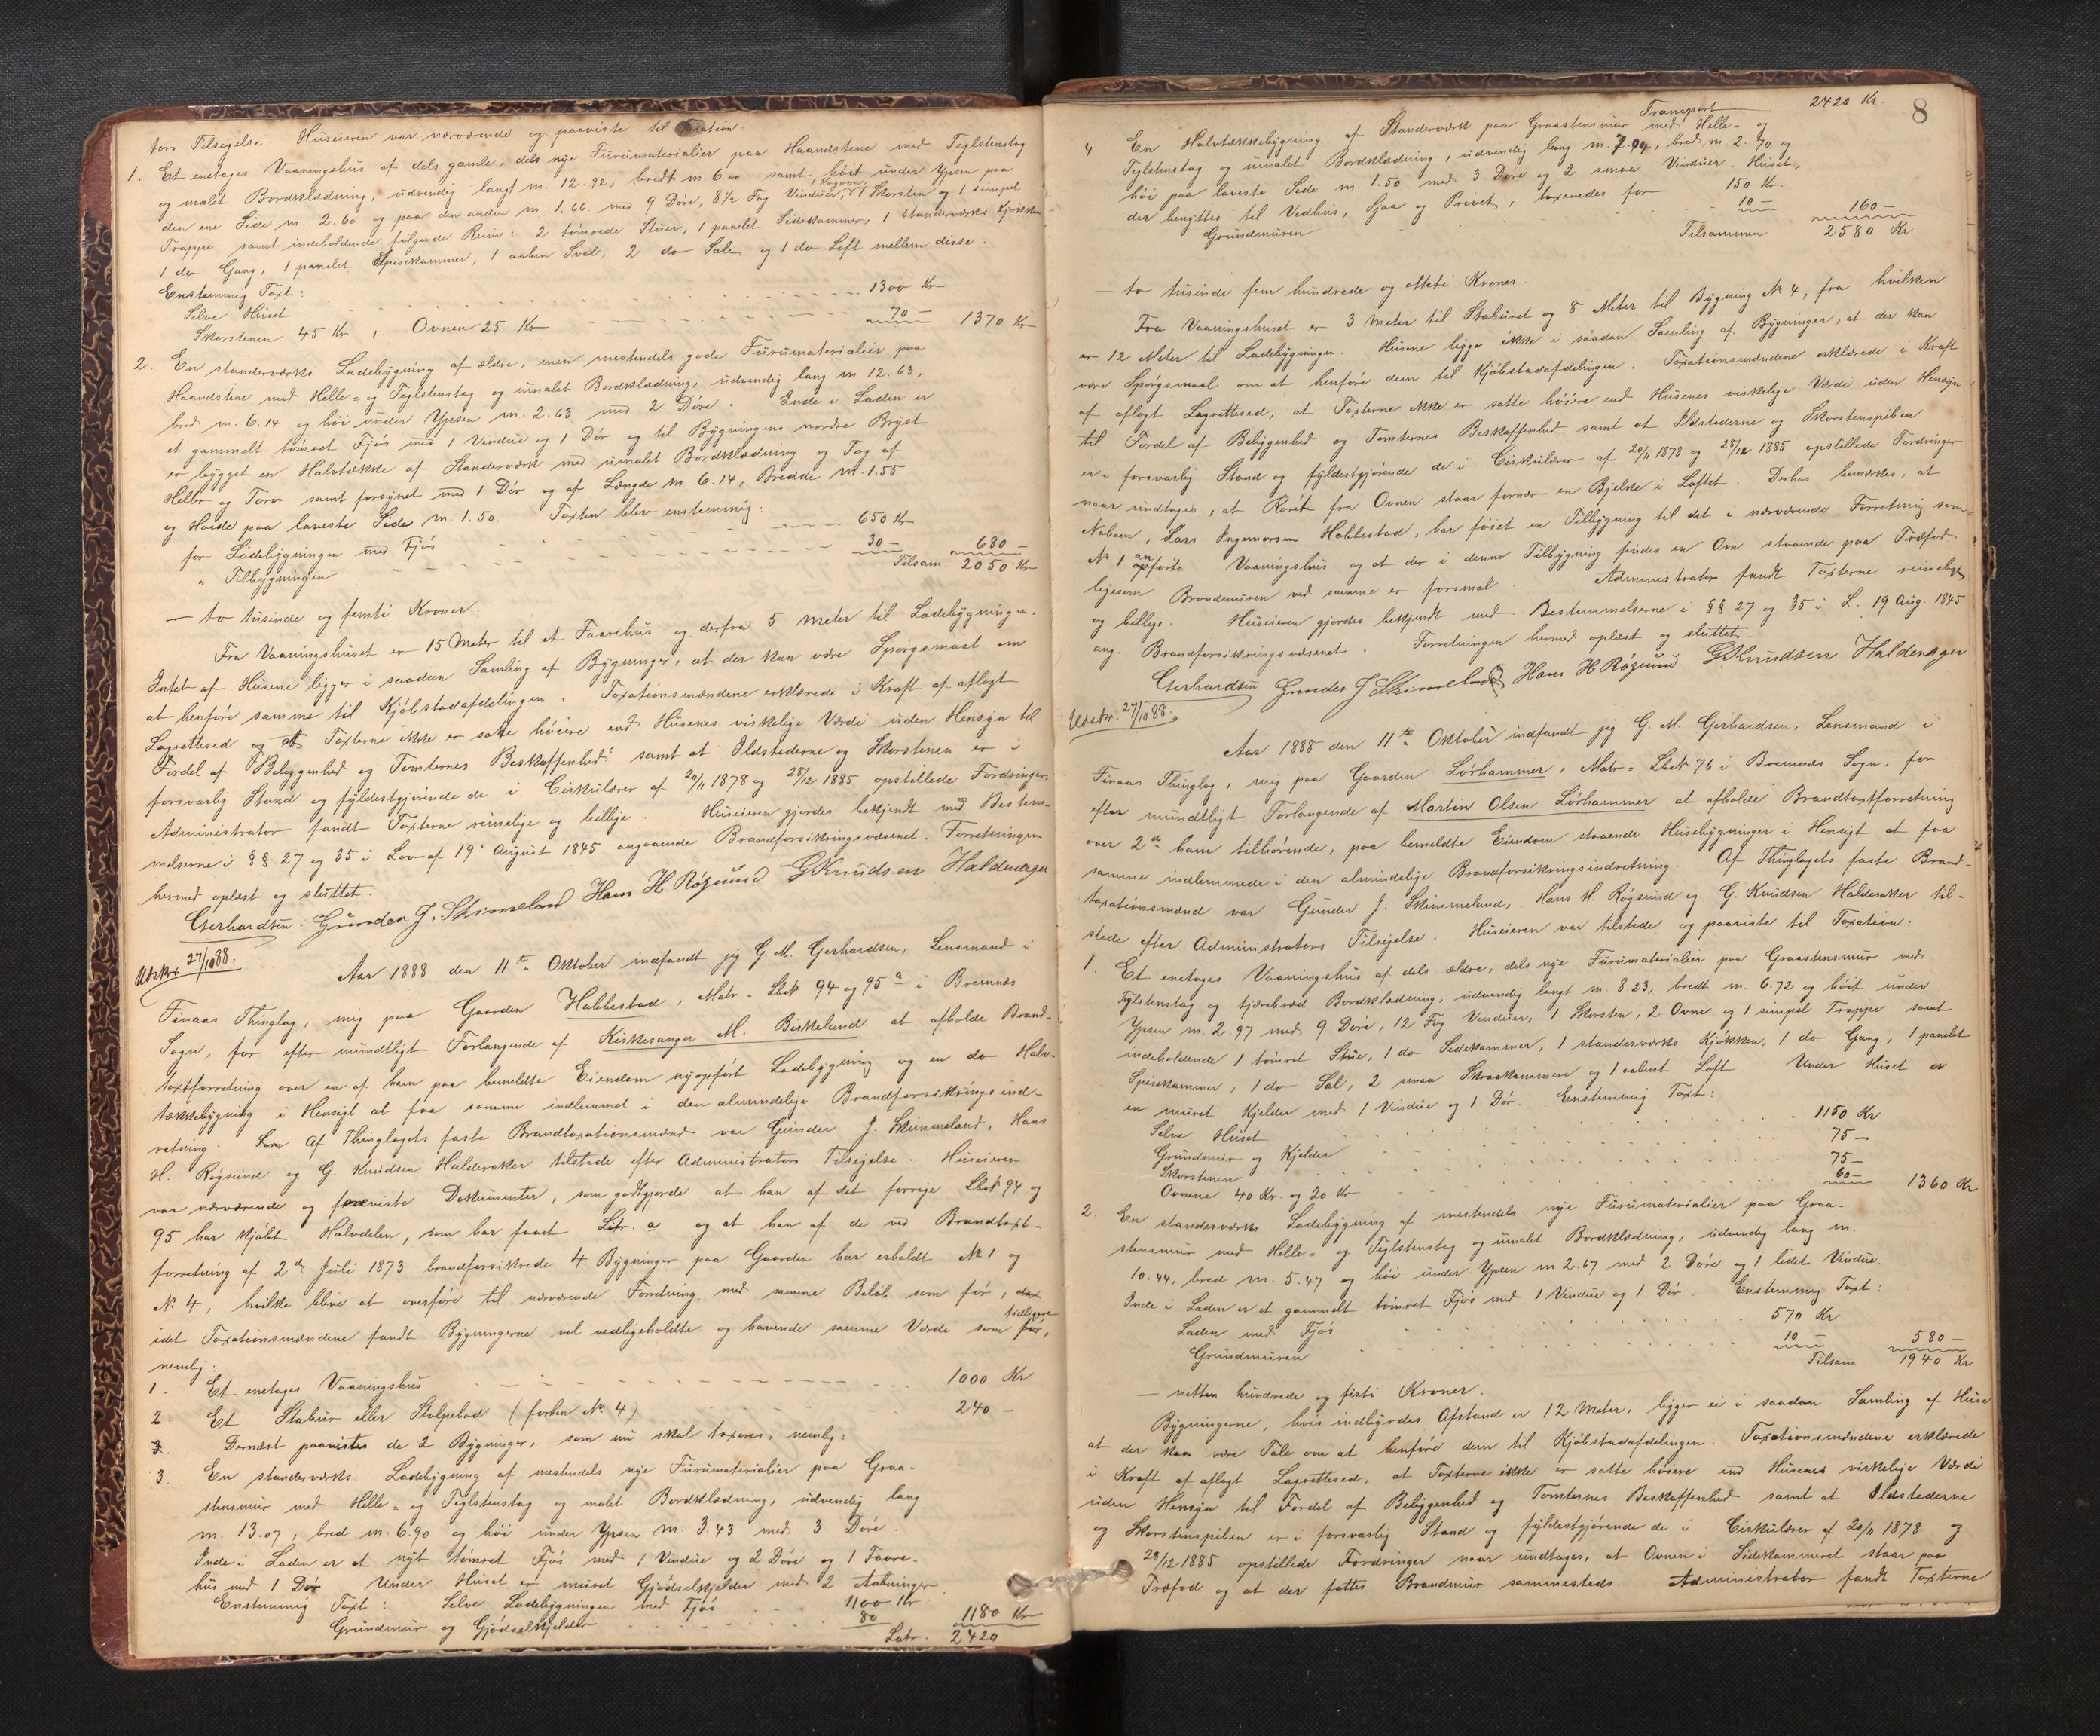 tors Tilsigelse. Huseieren var nærværende og paaviste til Taxation:
1. Et enetages Vaaningshus af dels gamle, dels nye Furumaterialier paa Haandstene med Teglstenstag
og malet Bordklædning, udvendig langt m. 12.92, bredt m. 6.00 samt høit under Ypsen paa
den ene Side m. 2.60 og paa den anden m. 1.66. med 9 Døre, 8 1/2 Fag Vinduer, 1 Kogeovn, 1 Skorsten og 1 simpel
Trappe samt indeholdende følgende Rum: 2 tømrede Stuer, 1 panelet Sidekammer, 1 standerværks Kjøkken
1 do Gang, 1 panelet Spisekammer, 1 aaben Sval, 2 do Sale og 1 do Loft mellem disse.
Enstemmig Taxt:
Selve Huset 1300 Kr
Skorstenen 45 Kr, Ovnen 25 Kr 70 — 1370 Kr
2. En standerværks Ladebygning af ældre, men mestendels gode Furumaterialier paa
Haandstene med Helle= og Teglstenstag og umalet Bordklædning, udvendig lang m 12.63,
bred m. 6.14 og høi under Ypsen m. 2.63 med 2 Døre. Inde i Laden er
et gammelt tømret Fjøs med 1 Vindue og 1 Dør og til Bygningens nordre Bryst
er bygget en Halvtække af Standerværk med umalet Bordklædning og Tag af
Heller og Torv samt forsynet med 1 Dør og af Længde m 6.14, Bredde m. 1.55
og Høide paa laveste Side m. 1.50. Taxten blev enstemmig:
for Ladebygningen med Fjøs 650 Kr
" Tilbygningen 30 — 680 —
Tilsam. 2050 Kr
— to tusinde og femti Kroner.
Fra Vaaningshuset er 15 Meter til et Faarehus og derfra 5 Meter til Ladebygningen.
Intet af Husene ligger i saadan Samling af Bygninger, at der kan være Spørgsmaal om
at henføre samme til Kjøbstadafdelingen. Taxationsmændene erklærede i Kraft af aflagt
Lagrettesed og at Taxterne ikke er satte høiere end Husenes virkelige Værdi uden Hensyn til
Fordel af Beliggenhed og Tomternes Beskaffenhed samt at Ildstederne og Skorstenen er i
forsvarlig Stand og fyldestgjørende de i Cirkulærer af 20/11 1878 og 28/12 1885 opstillede Fordringer.
Administrator fandt Taxterne rimelige og billige. Huseieren gjordes bekjendt med Bestem-
melserne i §§ 27 og 35 i Lov af 19' August 1845 angaaende Brandforsikringsvæsenet. Forretningen
hermed oplæst og sluttet.
Gerhardsen. Gunder J. Skimmeland Hans H Røgsund GKnudsen Halderager
Udskr 27/10 88.
Aar 1888 den 11te Oktober indfandt jeg G. M. Gerhardsen, Lensmand i
Finaas Thinglag, mig paa Gaarden Habbestad, Matr-Lbno 94 og 95a i Bremnæs
Sogn, for efter mundtligt Forlangende af Kirkesanger M. Birkeland at afholde Brand-
taxtforretning over en af ham paa bemeldte Eiendom nyopført Ladebygning og en do Halv-
tækkebygning i Hensigt at faa samme indlemmet i den almindelige Brandforsikringsind-
retning. Som Af Thinglagets faste Brandtaxationsmænd var Gunder J. Skimmeland, Hans
H. Røgsund og G. Knudsen Halderaker tilstede efter Administrators Tilsigelse. Huseieren
var nærværende og foreviste Dokumenter, som godtgjorde at han af det forrige Lbno 94 og
95 har kjøbt Halvdelen, som har faaet Litr. a og at han af de ved Brandtaxt-
forretning af 2den Juli 1873 brandforsikrede 4 Bygninger paa Gaarden har erholdt No 1 og
No 4, hvilke bleve at overføre til nærværende Forretning med samme Beløb som før,
idet Taxationsmændene fandt Bygningerne vel vedligeholdte og havende samme Værdi som tidligere,
nemlig:
1. Et enetages Vaaningshus 1000 Kr
2. Et Stabur eller Stolpebod (forhen No 4) 240 —
Dernæst paavistes de 2 Bygninger, som nu skal taxeres, nemlig:
3. En standerværks Ladebygning af mestendels nye Furumaterialier paa Graa-
stensmur med Helle= og Teglstenstag og malet Bordklædning, udvendig lang
m. 13.07, bred m. 6.90 og høi under Ypsen m. 3.43 med 3 Døre.
Inde i Laden er et nyt tømret Fjøs med 1 Vindue og 2 Døre og 1 Faare-
hus med 1 Dør. Under Huset er muret Gjødselkjelder med 2 Aabninger.
Enstemmig Taxt: Selve Ladebygningen med Fjøs 1100 Kr
Grundmur og Gjødselkjelder 80 1180 Kr
Latr. 2420
8
Transport 2420 Kr.
4 En Halvtækkebygning af Standerværk paa Graastensmur med Helle- og
Teglstenstag og umalet Bordklædning, udvendig lang m. 7.04, bred m. 2.70 og
høi paa laveste Side m. 1.50 med 3 Døre og 2 smaa Vinduer. Huset,
der benyttes til Vedhus, Sjaa og Privet, taxeredes for 150 Kr.
Grundmuren 10 — 160 —
Tilsammen 2580 Kr
— to tusinde fem hundrede og otteti Kroner.
Fra Vaaningshuset er 3 Meter til Staburet og 8 Meter til Bygning No 4, fra hvilken
er 12 Meter til Ladebygningen. Husene ligge ikke i saadan Samling af Bygninger, at der kan
være Spørgsmaal om at henføre dem til Kjøbstadafdelingen. Taxationsmændene erklærede i Kraft
af aflagt Lagrettesed, at Taxterne ikke er satte høiere end Husenes virkelige Værdi uden Hensyn
til Fordel af Beliggenhed og Tomternes Beskaffenhed samt at Ildstederne og Skorstenspiben
er i forsvarlig Stand og fyldestgjørende de i Cirkulærer af 20/11 1878 og 28/12 1885 opstillede Fordringer
naar undtages, at Røret fra Ovnen staar fornær en Bjelke i Loftet. Derhos bemærkes, at
Naboen, Lars Ingemorsen Habbestad, har føiet en Tilbygning til det i nærværende Forretning som
No 1 anførte Vaaningshus og at der i denne Tilbygning findes en Ovn staaende paa Træfod
ligesom Brandmuren ved samme er forsmal. Administrator fandt Taxterne rimelige
og billige. Huseieren gjordes bekjendt med Bestemmelserne i §§ 27 og 35 i L. 19 Aug. 1845
ang. Brandforsikringsvæsenet. Forretningen hermed oplæst og sluttet.
Gerhardsen Gunder J Skimmeland Hans H Røgsund GKnudsen Halderager
Udskr. 27/10 88.
Aar 1888 den 11te Oktober indfandt jeg G. M. Gerhardsen, Lensmand i
Finaas Thinglag, mig paa Gaarden Lørhammer, Matr= Lbno 76 i Bremnæs Sogn, for
efter mundtligt Forlangende af Martin Olsen Lørhammer at afholde Brandtaxtforretning
over 2de ham tilhørende, paa bemeldte Eiendom staaende Husebygninger i Hensigt at faa
samme indlemmede i den almindelige Brandforsikringsindretning. Af Thinglagets faste Brand-
taxationsmænd var Gunder J. Skimmeland, Hans H. Røgsund og G. Knudsen Halderaker til-
stede efter Administrators Tilsigelse. Huseieren var tilstede og paaviste til Taxation:
1. Et enetages Vaaningshus af dels ældre, dels nye Furumaterialier paa Graastensmur med
Teglstenstag og tjærebred Bordklædning, udvendig langt m. 8.23, bredt m. 6.72 og høit under
Ypsen m. 2.97 med 9 Døre, 12 Fag Vinduer, 1 Skorsten, 2 Ovne og 1 simpel Trappe samt
indeholdende 1 tømret Stue, 1 do Sidekammer, 1 standerværks Kjøkken, 1 do Gang, 1 panelet
Spisekammer, 1 do Sal, 2 smaa Skraakammere og 1 aabent Loft. Under Huset er
en muret Kjelder med 1 Vindue og 1 Dør. Enstemmig Taxt:
Selve Huset 1150 Kr
Grundmur og Kjelder 75 —
Skorstenen 75 —
Ovnene 40 Kr. og 20 Kr 60 — 1360 Kr
2. En standerværks Ladebygning af mestendels nye Furumaterialier paa Graa-
stensmur med Helle= og Teglstenstag og umalet Bordklædning, udvendig lang m.
10.44, bred m. 5.47 og høi under Ypsen m 2.67 med 2 Døre og 1 lidet Vindue.
Inde i Laden er et gammelt tømret Fjøs med 1 Vindue og 1 Dør. Enstemmig Taxt:
Laden med Fjøs 570 Kr
Grundmuren 10 — 580 —
Tilsam. 1940 Kr
— nitten hundrede og firti Kroner.
Bygningerne, hvis indbyrdes Afstand er 12 Meter, ligger ei i saadan Samling af Huse
at der kan være Tale om at henføre dem til Kjøbstadafdelingen. Taxationsmændene erklærede
i Kraft af aflagt Lagrettesed, at Taxterne ikke er satte høiere end Husenes virkelige Værdi
uden Hensyn til Fordel af Beliggenhed og Tomternes Beskaffenhed samt at Ildstederne
og Skorstenspiben er i forsvarlig Stand og fyldestgjørende de i Cirkulærer af 20/11 1878 og
28/12 1885 opstillede Fordringer naar undtages, at Ovnen i Sidekammeret staar paa
Træfod og at der fattes Brandmur sammesteds. Administrator fandt Taxterne